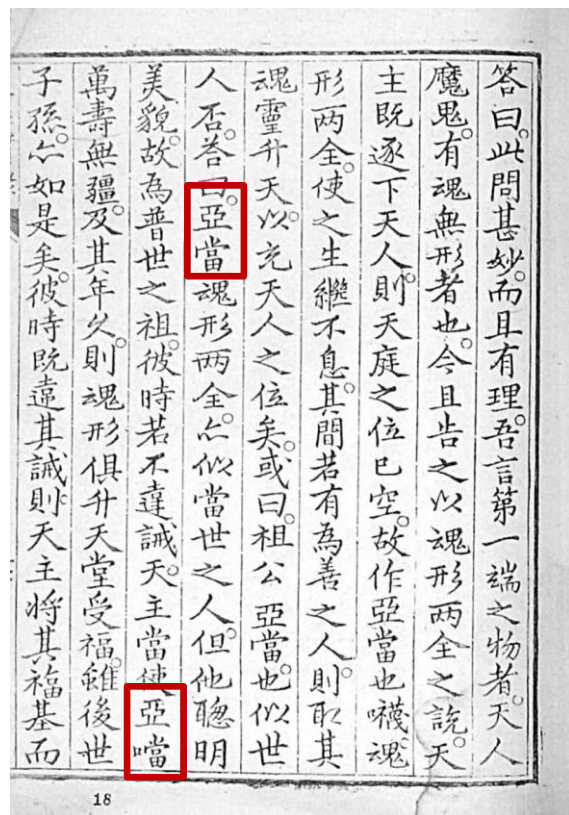 答曰。此問甚妙。而且有理。吾言第一端之物者。天人
魔鬼。有魂無形者也。今且告之以魂形两全之說。天
主既逐下天人。則天庭之位已空。故作亞當也㗲魂
形两全。使之生繼不息。其間若有為善之人。則取其
魂靈升天。以充天人之位矣。或曰。祖公亞當也。似世
人否。答曰。亞當魂形两全。亦似當世之人。但他聰明
美貌。故為普世之祖。彼時若不違誡。天主當使亞噹
萬壽無疆。及其年久。則魂形俱升天堂受福。雖後世
子孫。亦如是矣。彼時既違其誡。則天主將其福基而
18